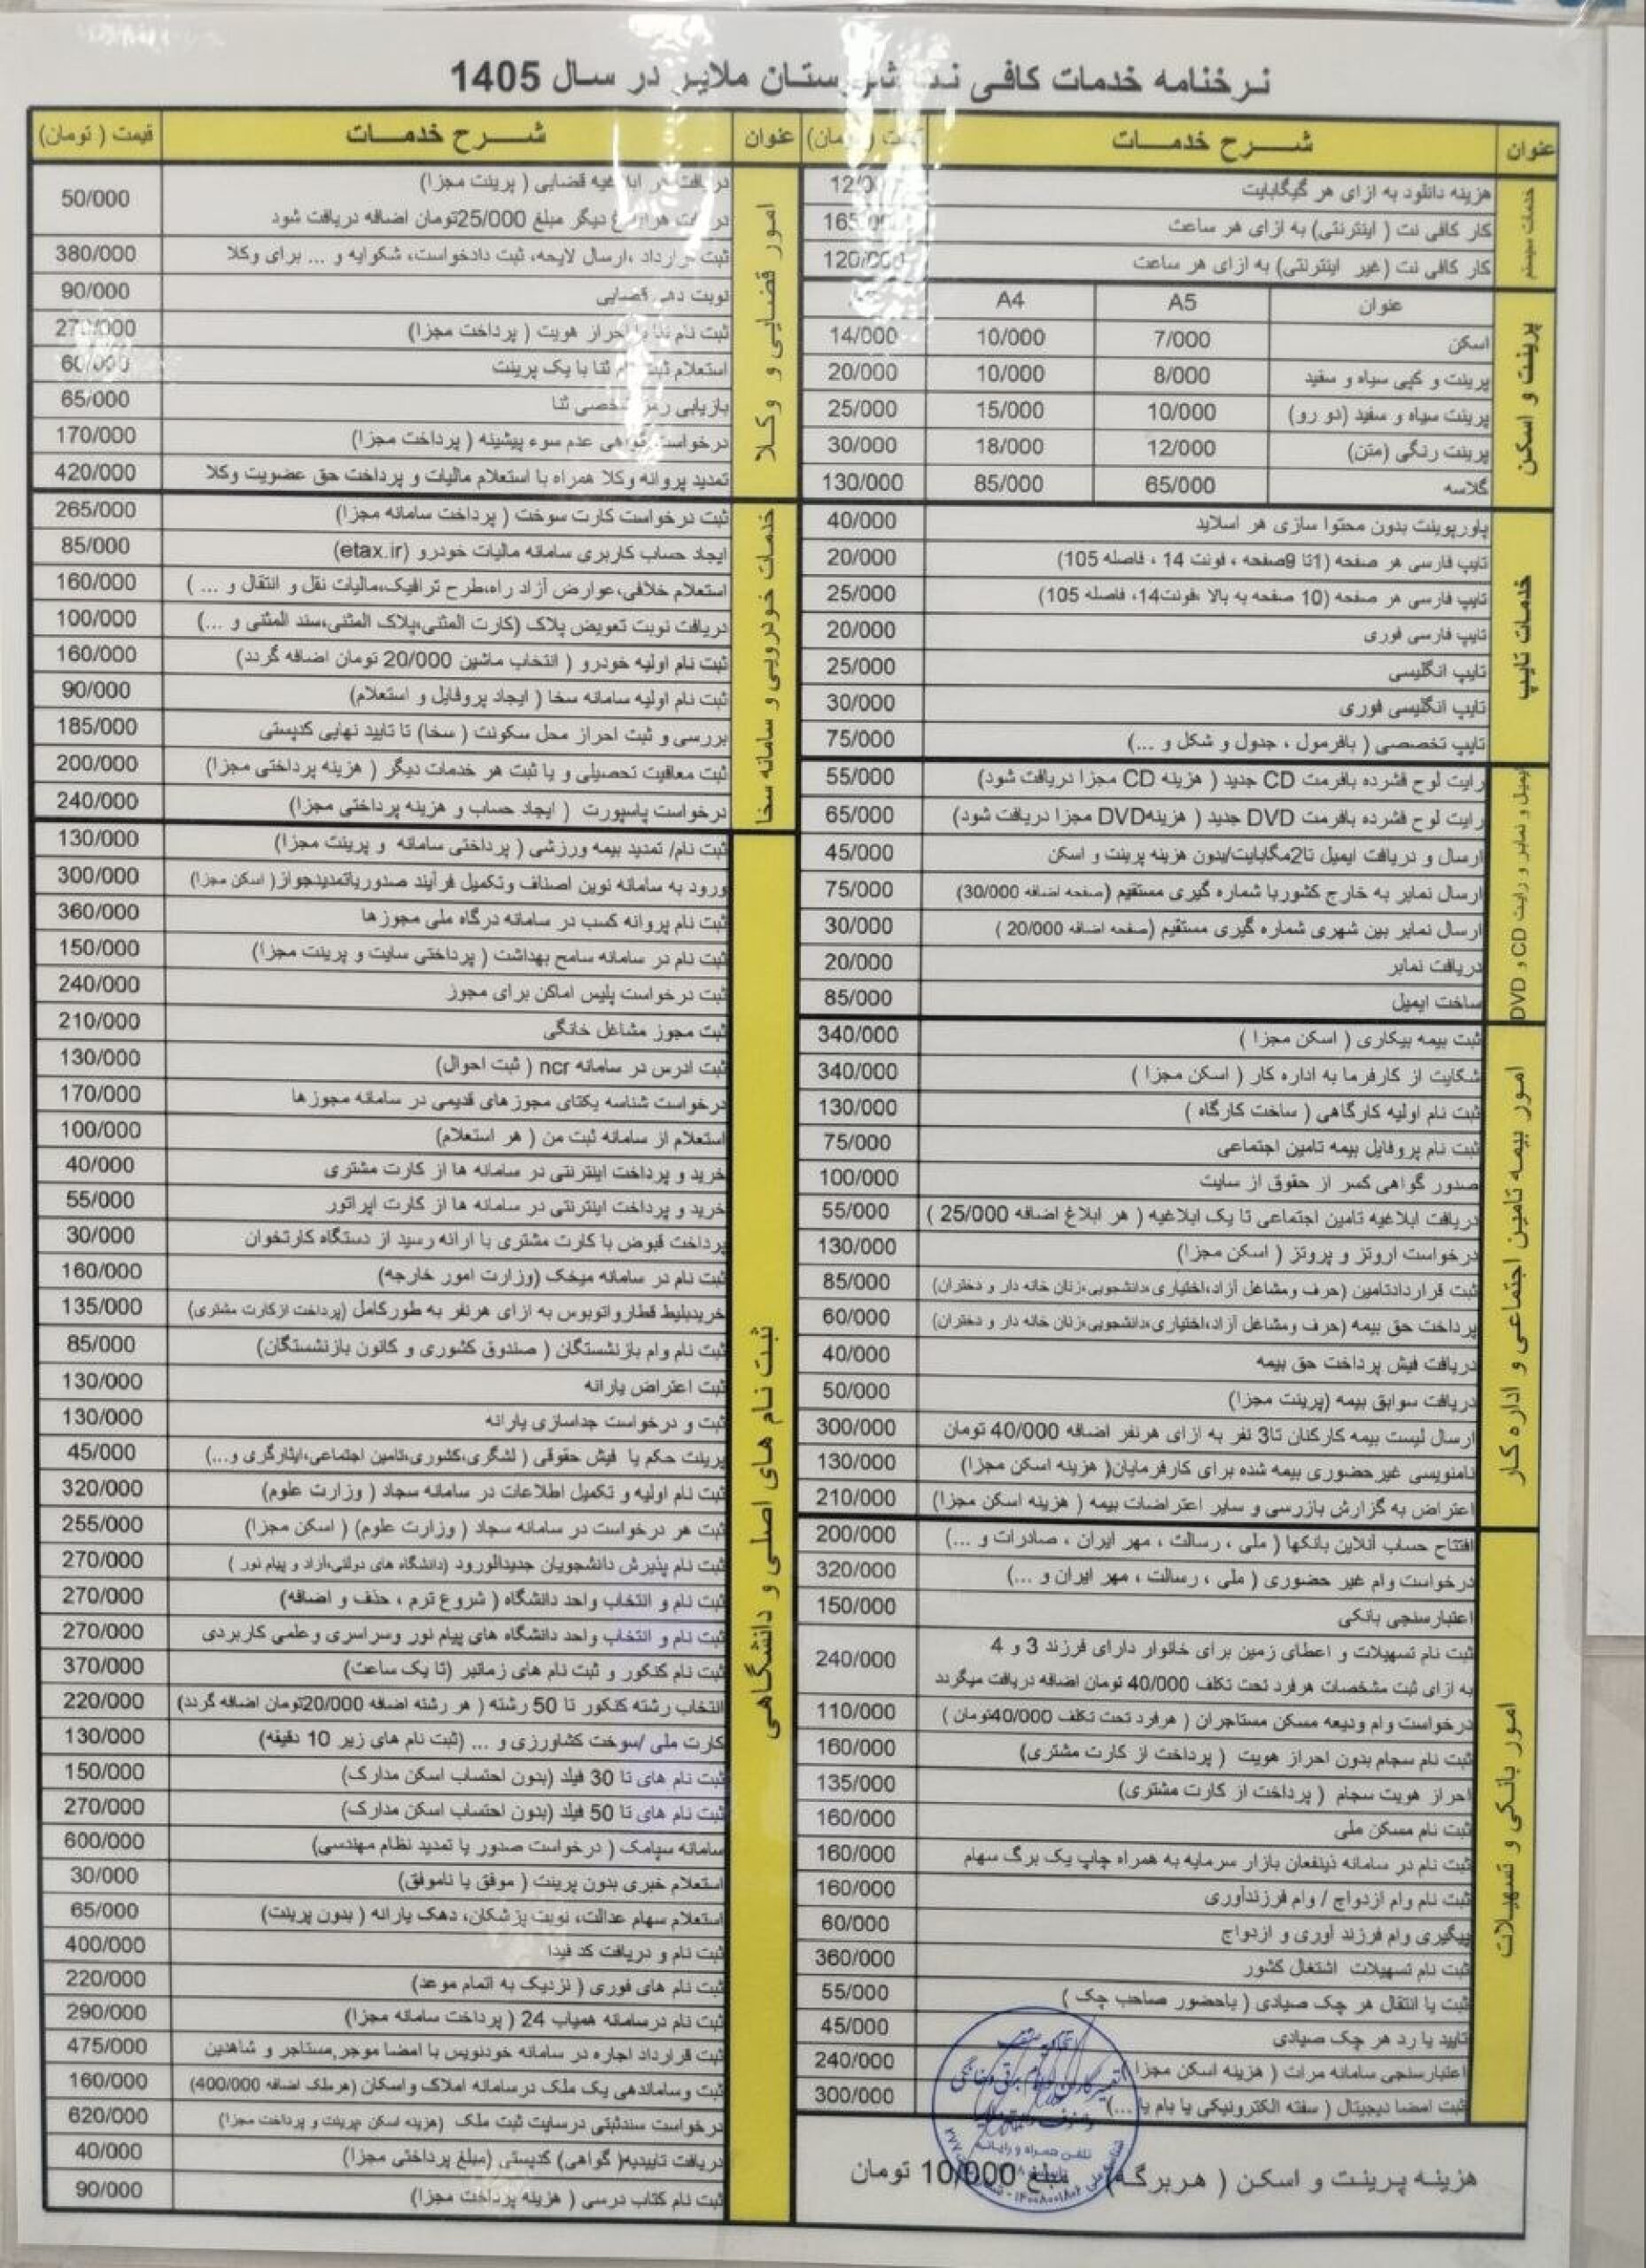 نرخنامه خدمات کافی نت شهرستان ملایر در سال 1405
عنوان شــرح خدمــات قیمت ( تومان)
خدمات سیستم
هزینه دانلود به ازای هر گیگابایت
کار کافی نت ( اینترنتی) به ازای هر ساعت
کار کافی نت (غیر اینترنتی) به ازای هر ساعت 120/000
پرینت و اسکن
عنوان A5 A4
اسکن 7/000 10/000 14/000
پرینت و کپی سیاه و سفید 8/000 10/000 20/000
پرینت سیاه و سفید (دو رو) 10/000 15/000 25/000
پرینت رنگی (متن) 12/000 18/000 30/000
گلاسه 65/000 85/000 130/000
خدمات تایپ
پاورپوینت بدون محتوا سازی هر اسلاید 40/000
تایپ فارسی هر صفحه (1تا 9صفحه ، فونت 14 ، فاصله 105) 20/000
تایپ فارسی هر صفحه (10 صفحه به بالا ،فونت14، فاصله 105) 25/000
تایپ فارسی فوری 20/000
تایپ انگلیسی 25/000
تایپ انگلیسی فوری 30/000
تایپ تخصصی ( بافرمول ، جدول و شکل و ...) 75/000
ایمیل و نمابر و رایت CD و DVD
رایت لوح فشرده بافرمت CD جدید ( هزینه CD مجزا دریافت شود) 55/000
رایت لوح فشرده بافرمت DVD جدید ( هزینهDVD مجزا دریافت شود) 65/000
ارسال و دریافت ایمیل تا2مگابایت/بدون هزینه پرینت و اسکن 45/000
ارسال نمابر به خارج کشوربا شماره گیری مستقیم (صفحه اضافه 30/000) 75/000
ارسال نمابر بین شهری شماره گیری مستقیم (صفحه اضافه 20/000 ) 30/000
دریافت نمابر 20/000
ساخت ایمیل 85/000
امور بیمه تامین اجتماعی و اداره کار
ثبت بیمه بیکاری ( اسکن مجزا ) 340/000
شکایت از کارفرما به اداره کار ( اسکن مجزا ) 340/000
ثبت نام اولیه کارگاهی ( ساخت کارگاه ) 130/000
ثبت نام پروفایل بیمه تامین اجتماعی 75/000
صدور گواهی کسر از حقوق از سایت 100/000
دریافت ابلاغیه تامین اجتماعی تا یک ابلاغیه ( هر ابلاغ اضافه 25/000 ) 55/000
درخواست اروتز و پروتز ( اسکن مجزا) 130/000
ثبت قراردادتامین (حرف ومشاغل آزاد،اختیاری،دانشجویی،زنان خانه دار و دختران) 85/000
پرداخت حق بیمه (حرف ومشاغل آزاد،اختیاری،دانشجویی،زنان خانه دار و دختران) 60/000
دریافت فیش پرداخت حق بیمه 40/000
دریافت سوابق بیمه (پرینت مجزا) 50/000
ارسال لیست بیمه کارکنان تا3 نفر به ازای هرنفر اضافه 40/000 تومان 300/000
نامنویسی غیرحضوری بیمه شده برای کارفرمایان( هزینه اسکن مجزا) 130/000
اعتراض به گزارش بازرسی و سایر اعتراضات بیمه ( هزینه اسکن مجزا) 210/000
امور بانکی و تسهیلات
افتتاح حساب آنلاین بانکها ( ملی ، رسالت ، مهر ایران ، صادرات و ...) 200/000
درخواست وام غیر حضوری ( ملی ، رسالت ، مهر ایران و ...) 320/000
اعتبارسنجی بانکی 150/000
ثبت نام تسهیلات و اعطای زمین برای خانوار دارای فرزند 3 و 4 240/000
به ازای ثبت مشخصات هرفرد تحت تکلف 40/000 تومان اضافه دریافت میگردد
درخواست وام ودیعه مسکن مستاجران ( هرفرد تحت تکلف 40/000تومان ) 110/000
ثبت نام سجام بدون احراز هویت ( پرداخت از کارت مشتری) 160/000
احراز هویت سجام ( پرداخت از کارت مشتری) 135/000
ثبت نام مسکن ملی 160/000
ثبت نام در سامانه ذینفعان بازار سرمایه به همراه چاپ یک برگ سهام 160/000
ثبت نام وام ازدواج / وام فرزندآوری 160/000
پیگیری وام فرزند آوری و ازدواج 60/000
ثبت نام تسهیلات اشتغال کشور 360/000
ثبت یا انتقال هر چک صیادی ( باحضور صاحب چک ) 55/000
تایید یا رد هر چک صیادی 45/000
اعتبارسنجی سامانه مرات ( هزینه اسکن مجزا ) 240/000
ثبت امضا دیجیتال ( سفته الکترونیکی یا بام یا ...) 300/000
هزینه پرینت و اسکن ( هربرگه) مبلغ 10/000 تومان
تلفن همراه و رایانه
عنوان شــرح خدمــات قیمت ( تومان)
امور قضایی و وکلا
ابلاغیه قضایی ( پرینت مجزا) 50/000
دیگر مبلغ 25/000تومان اضافه دریافت شود
ثبت قرارداد ،ارسال لایحه، ثبت دادخواست، شکوایه و ... برای وکلا 380/000
نوبت دهی قضایی 90/000
ثبت نام ثنا با احراز هویت ( پرداخت مجزا) 270/000
استعلام ثبت نام ثنا با یک پرینت 60/000
بازیابی رمز شخصی ثنا 65/000
درخواست گواهی عدم سوء پیشینه ( پرداخت مجزا) 170/000
تمدید پروانه وکلا همراه با استعلام مالیات و پرداخت حق عضویت وکلا 420/000
خدمات خودرویی و سامانه سخا
ثبت درخواست کارت سوخت ( پرداخت سامانه مجزا) 265/000
ایجاد حساب کاربری سامانه مالیات خودرو (etax.ir) 85/000
استعلام خلافی،عوارض آزاد راه،طرح ترافیک،مالیات نقل و انتقال و ... ) 160/000
دریافت نوبت تعویض پلاک (کارت المثنی،پلاک المثنی،سند المثنی و ...) 100/000
ثبت نام اولیه خودرو ( انتخاب ماشین 20/000 تومان اضافه گردد) 160/000
ثبت نام اولیه سامانه سخا ( ایجاد پروفایل و استعلام) 90/000
بررسی و ثبت احراز محل سکونت ( سخا) تا تایید نهایی کدپستی 185/000
ثبت معافیت تحصیلی و یا ثبت هر خدمات دیگر ( هزینه پرداختی مجزا) 200/000
درخواست پاسپورت ( ایجاد حساب و هزینه پرداختی مجزا) 240/000
ثبت نام های اصلی و دانشگاهی
ثبت نام/ تمدید بیمه ورزشی ( پرداختی سامانه و پرینت مجزا) 130/000
ورود به سامانه نوین اصناف وتکمیل فرآیند صدوریاتمدیدجواز( اسکن مجزا) 300/000
ثبت نام پروانه کسب در سامانه درگاه ملی مجوزها 360/000
ثبت نام در سامانه سامح بهداشت ( پرداختی سایت و پرینت مجزا) 150/000
ثبت درخواست پلیس اماکن برای مجوز 240/000
ثبت مجوز مشاغل خانگی 210/000
ثبت ادرس در سامانه ncr ( ثبت احوال) 130/000
درخواست شناسه یکتای مجوزهای قدیمی در سامانه مجوزها 170/000
استعلام از سامانه ثبت من ( هر استعلام) 100/000
خرید و پرداخت اینترنتی در سامانه ها از کارت مشتری 40/000
خرید و پرداخت اینترنتی در سامانه ها از کارت اپراتور 55/000
پرداخت قبوض با کارت مشتری با ارائه رسید از دستگاه کارتخوان 30/000
ثبت نام در سامانه میخک (وزارت امور خارجه) 160/000
خریدبلیط قطارواتوبوس به ازای هرنفر به طورکامل (پرداخت ازکارت مشتری) 135/000
ثبت نام وام بازنشستگان ( صندوق کشوری و کانون بازنشستگان) 85/000
ثبت اعتراض یارانه 130/000
ثبت و درخواست جداسازی یارانه 130/000
پرینت حکم یا فیش حقوقی ( لشگری،کشوری،تامین اجتماعی،ایثارگری و...) 45/000
ثبت نام اولیه و تکمیل اطلاعات در سامانه سجاد ( وزارت علوم) 320/000
ثبت هر درخواست در سامانه سجاد ( وزارت علوم) ( اسکن مجزا) 255/000
ثبت نام پذیرش دانشجویان جدیدالورود (دانشگاه های دولتی،آزاد و پیام نور ) 270/000
ثبت نام و انتخاب واحد دانشگاه ( شروع ترم ، حذف و اضافه) 270/000
ثبت نام و انتخاب واحد دانشگاه های پیام نور وسراسری وعلمی کاربردی 270/000
ثبت نام کنکور و ثبت نام های زمانبر (تا یک ساعت) 370/000
انتخاب رشته کنکور تا 50 رشته ( هر رشته اضافه 20/000تومان اضافه گردد) 220/000
کارت ملی /سوخت کشاورزی و ... (ثبت نام های زیر 10 دقیقه) 130/000
ثبت نام های تا 30 فیلد (بدون احتساب اسکن مدارک) 150/000
ثبت نام های تا 50 فیلد (بدون احتساب اسکن مدارک) 270/000
سامانه سپامک ( درخواست صدور یا تمدید نظام مهندسی) 600/000
استعلام خبری بدون پرینت ( موفق یا ناموفق) 30/000
استعلام سهام عدالت، نوبت پزشکان، دهک یارانه ( بدون پرینت) 65/000
ثبت نام و دریافت کد فیدا 400/000
ثبت نام های فوری ( نزدیک به اتمام موعد) 220/000
ثبت نام درسامانه همیاب 24 ( پرداخت سامانه مجزا) 290/000
ثبت قرارداد اجاره در سامانه خودنویس با امضا موجر،مستاجر و شاهدین 475/000
ثبت وساماندهی یک ملک درسامانه املاک واسکان (هرملک اضافه 400/000) 160/000
درخواست سندثبتی درسایت ثبت ملک (هزینه اسکن ،پرینت و پرداخت مجزا) 620/000
دریافت تاییدیه( گواهی) کدپستی (مبلغ پرداختی مجزا) 40/000
ثبت نام کتاب درسی ( هزینه پرداخت مجزا) 90/000